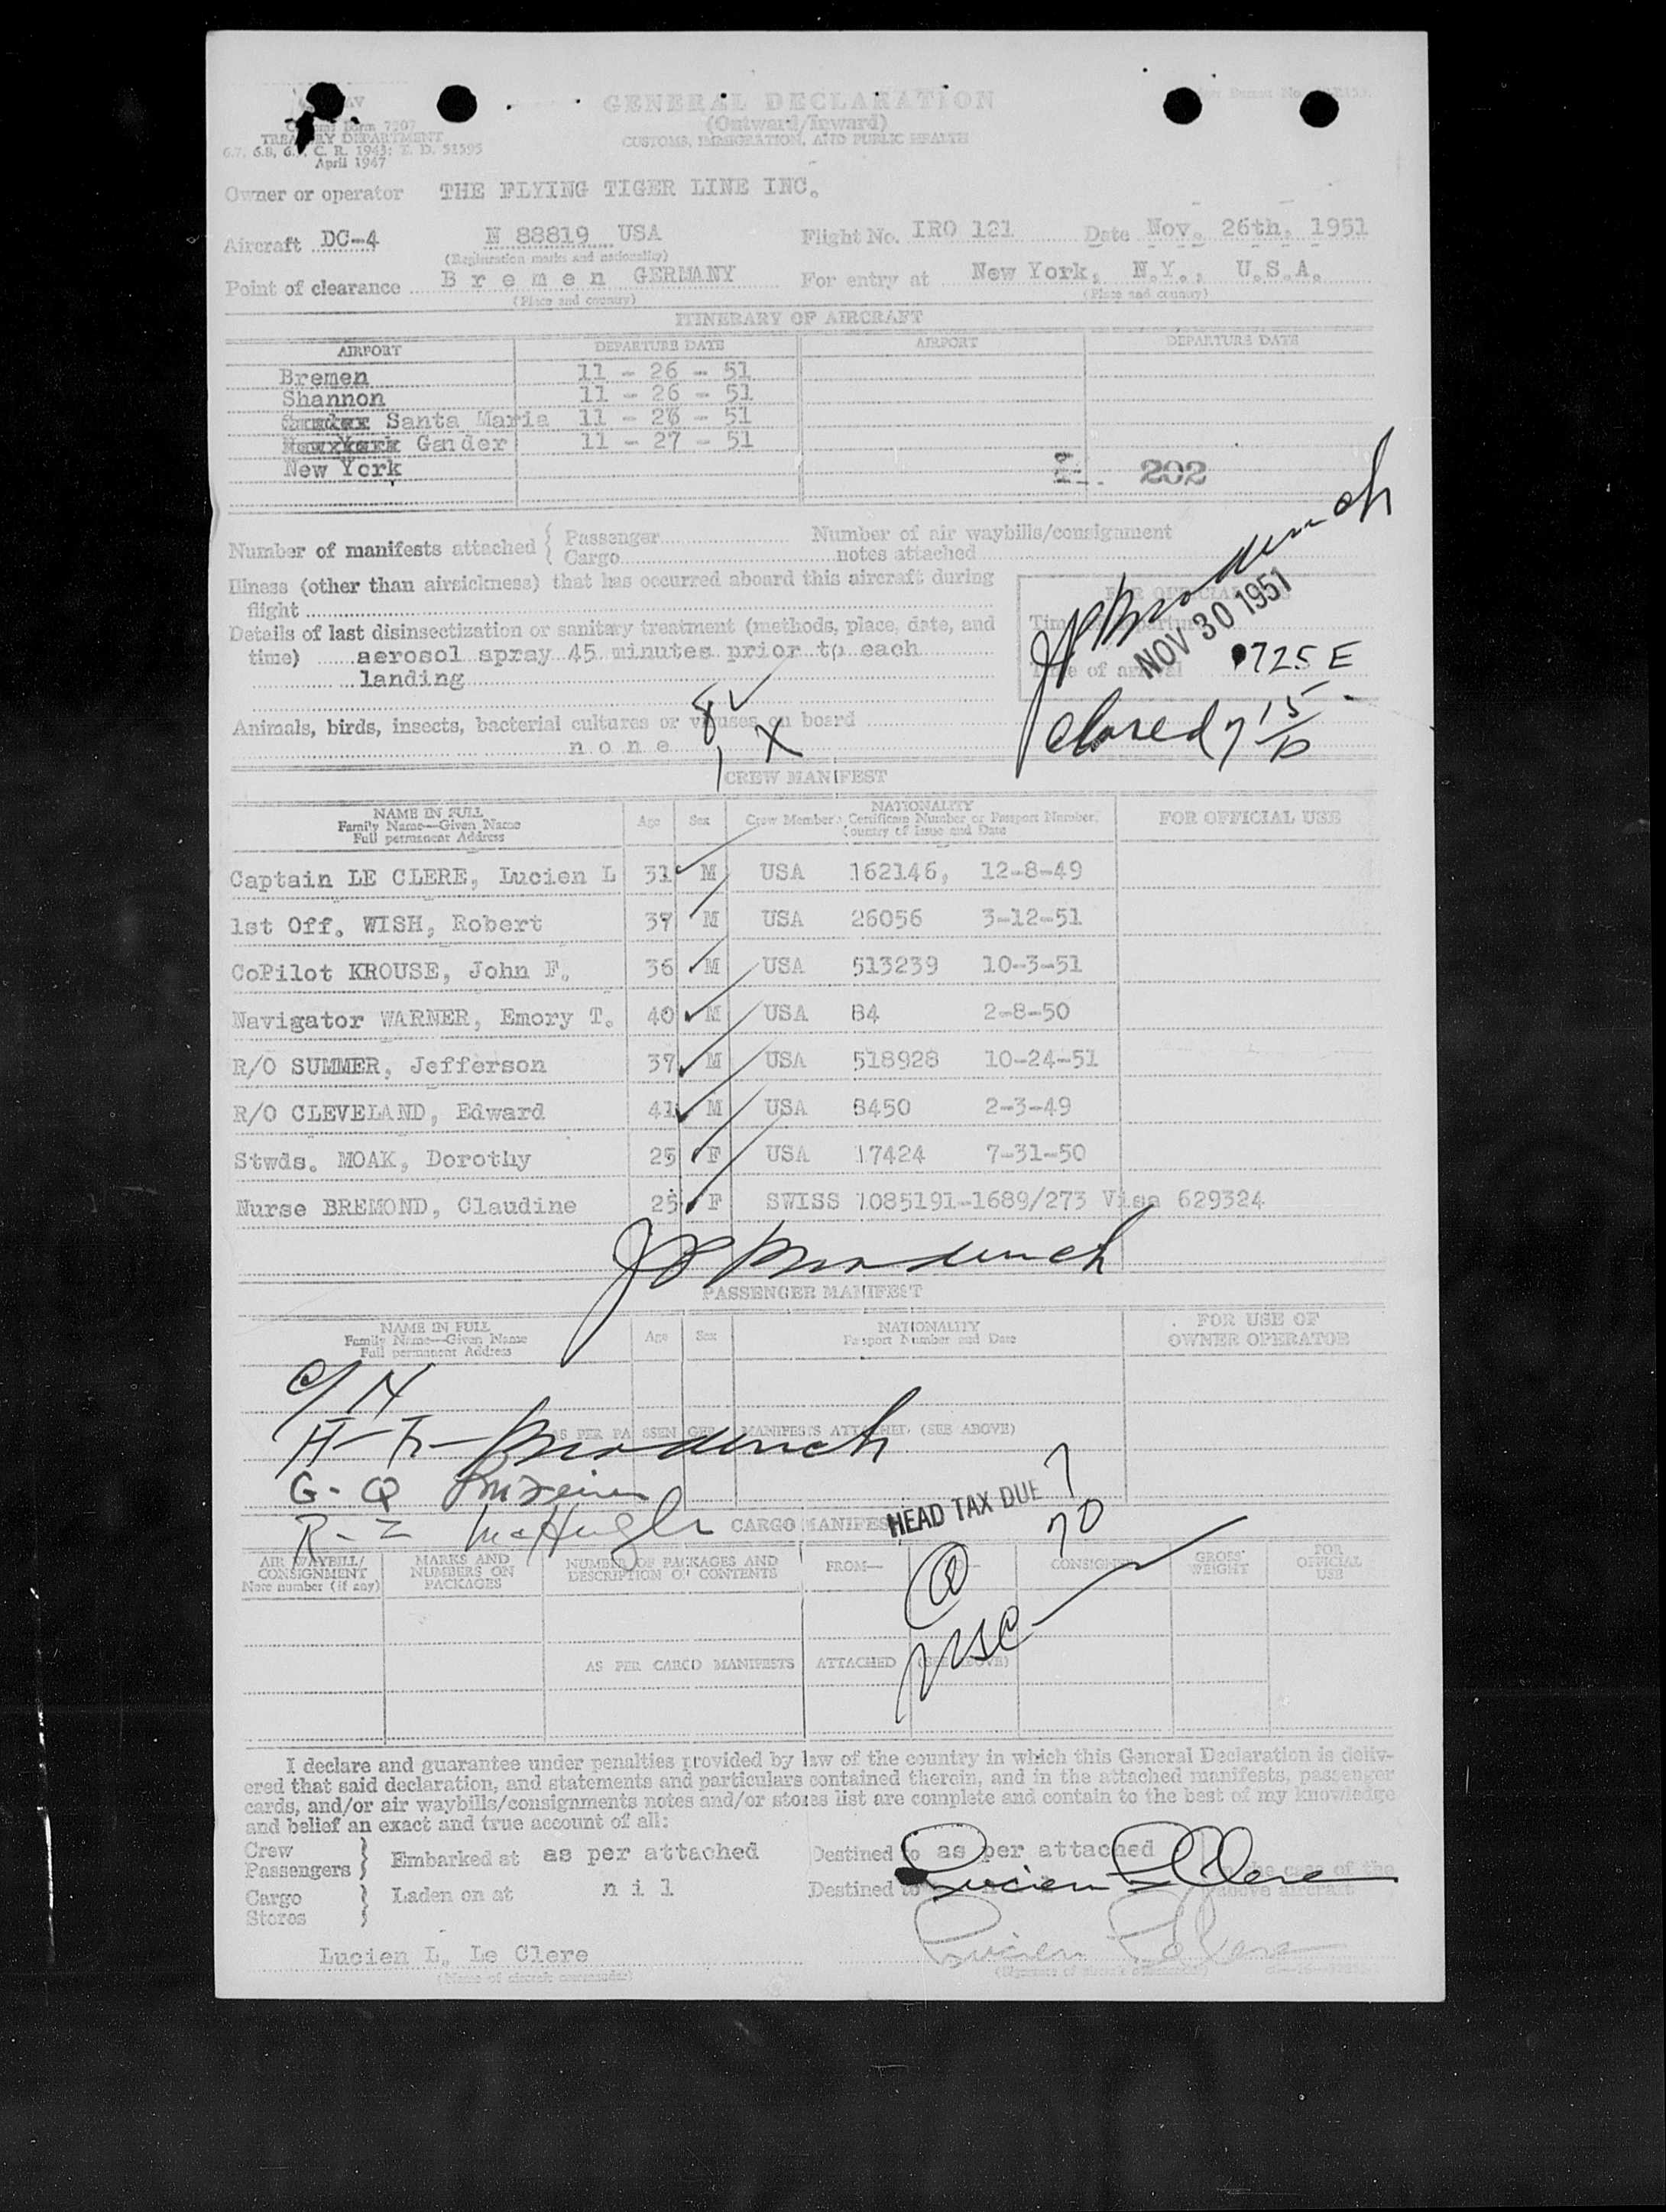 GENERAL DECLARATION
(Outward/Inward)
CUSTOMS, IMMIGRATION, AND PUBLIC HEALTH
Customs Form 7507
TREASURY DEPARTMENT
6.7, 6.8, 6.9, C. R. 1943; T. D. 51595
April 1947
Owner or operator THE FLYING TIGER LINE INC.
Aircraft DC-4 N 88819 USA Flight No. IRO 121 Date Nov. 26th, 1951
(Registration marks and nationality)
Point of clearance Bremen GERMANY For entry at New York, N.Y., U.S.A.
(Place and country) (Place and country)
ITINERARY OF AIRCRAFT
AIRPORT DEPARTURE DATE AIRPORT DEPARTURE DATE
Bremen 11 - 26 - 51
Shannon 11 - 26 - 51
Santa Maria 11 - 26 - 51
New York Gander 11 - 27 - 51
New York
202
Number of manifests attached { Passenger Number of air waybills/consignment
Cargo notes attached
Illness (other than airsickness) that has occurred aboard this aircraft during
flight
Details of last disinsectization or sanitary treatment (methods, place, date, and
time) aerosol spray 45 minutes prior to each
landing
FOR OFFICIAL USE
Time of departure
NOV 30 1951
Time of arrival 0725 E
Closed 7 15
Animals, birds, insects, bacterial cultures or viruses on board
none
8 X
CREW MANIFEST
NAME IN FULL Age Sex NATIONALITY FOR OFFICIAL USE
Family Name—Given Name Crew Member's Certificate Number or Passport Number,
Full permanent Address Country of Issue and Date
Captain LE CLERE, Lucien L 31 M USA 162146, 12-8-49
1st Off. WISH, Robert 37 M USA 26056 3-12-51
CoPilot KROUSE, John F. 36 M USA 513239 10-3-51
Navigator WARNER, Emory T. 40 M USA 84 2-8-50
R/O SUMMER, Jefferson 37 M USA 518928 10-24-51
R/O CLEVELAND, Edward 41 M USA 8450 2-3-49
Stwds. MOAK, Dorothy 25 F USA 17424 7-31-50
Nurse BREMOND, Claudine 25 F SWISS 1085191-1689/273 Visa 629324
PASSENGER MANIFEST
NAME IN FULL Age Sex NATIONALITY FOR USE OF
Family Name—Given Name Passport Number and Date OWNER OPERATOR
Full permanent Address
AS PER PASSENGER MANIFESTS ATTACHED (SEE ABOVE)
G - Q
R - Z McHugh
HEAD TAX DUE
70
CARGO MANIFEST
AIR WAYBILL/ MARKS AND NUMBER OF PACKAGES AND FROM— TO— CONSIGNEE GROSS FOR
CONSIGNMENT NUMBERS ON DESCRIPTION OF CONTENTS WEIGHT OFFICIAL
Note number (if any) PACKAGES USE
AS PER CARGO MANIFESTS ATTACHED (SEE ABOVE)
I declare and guarantee under penalties provided by law of the country in which this General Declaration is deliv-
ered that said declaration, and statements and particulars contained therein, and in the attached manifests, passenger
cards, and/or air waybills/consignments notes and/or stores list are complete and contain to the best of my knowledge
and belief an exact and true account of all:
Crew
Passengers } Embarked at as per attached Destined to as per attached in the case of the
Cargo } Laden on at nil Destined to above aircraft
Stores
Lucien L Le Clere
Lucien L. Le Clere Lucien L Le Clere
(Name of aircraft commander) (Signature of aircraft commander)